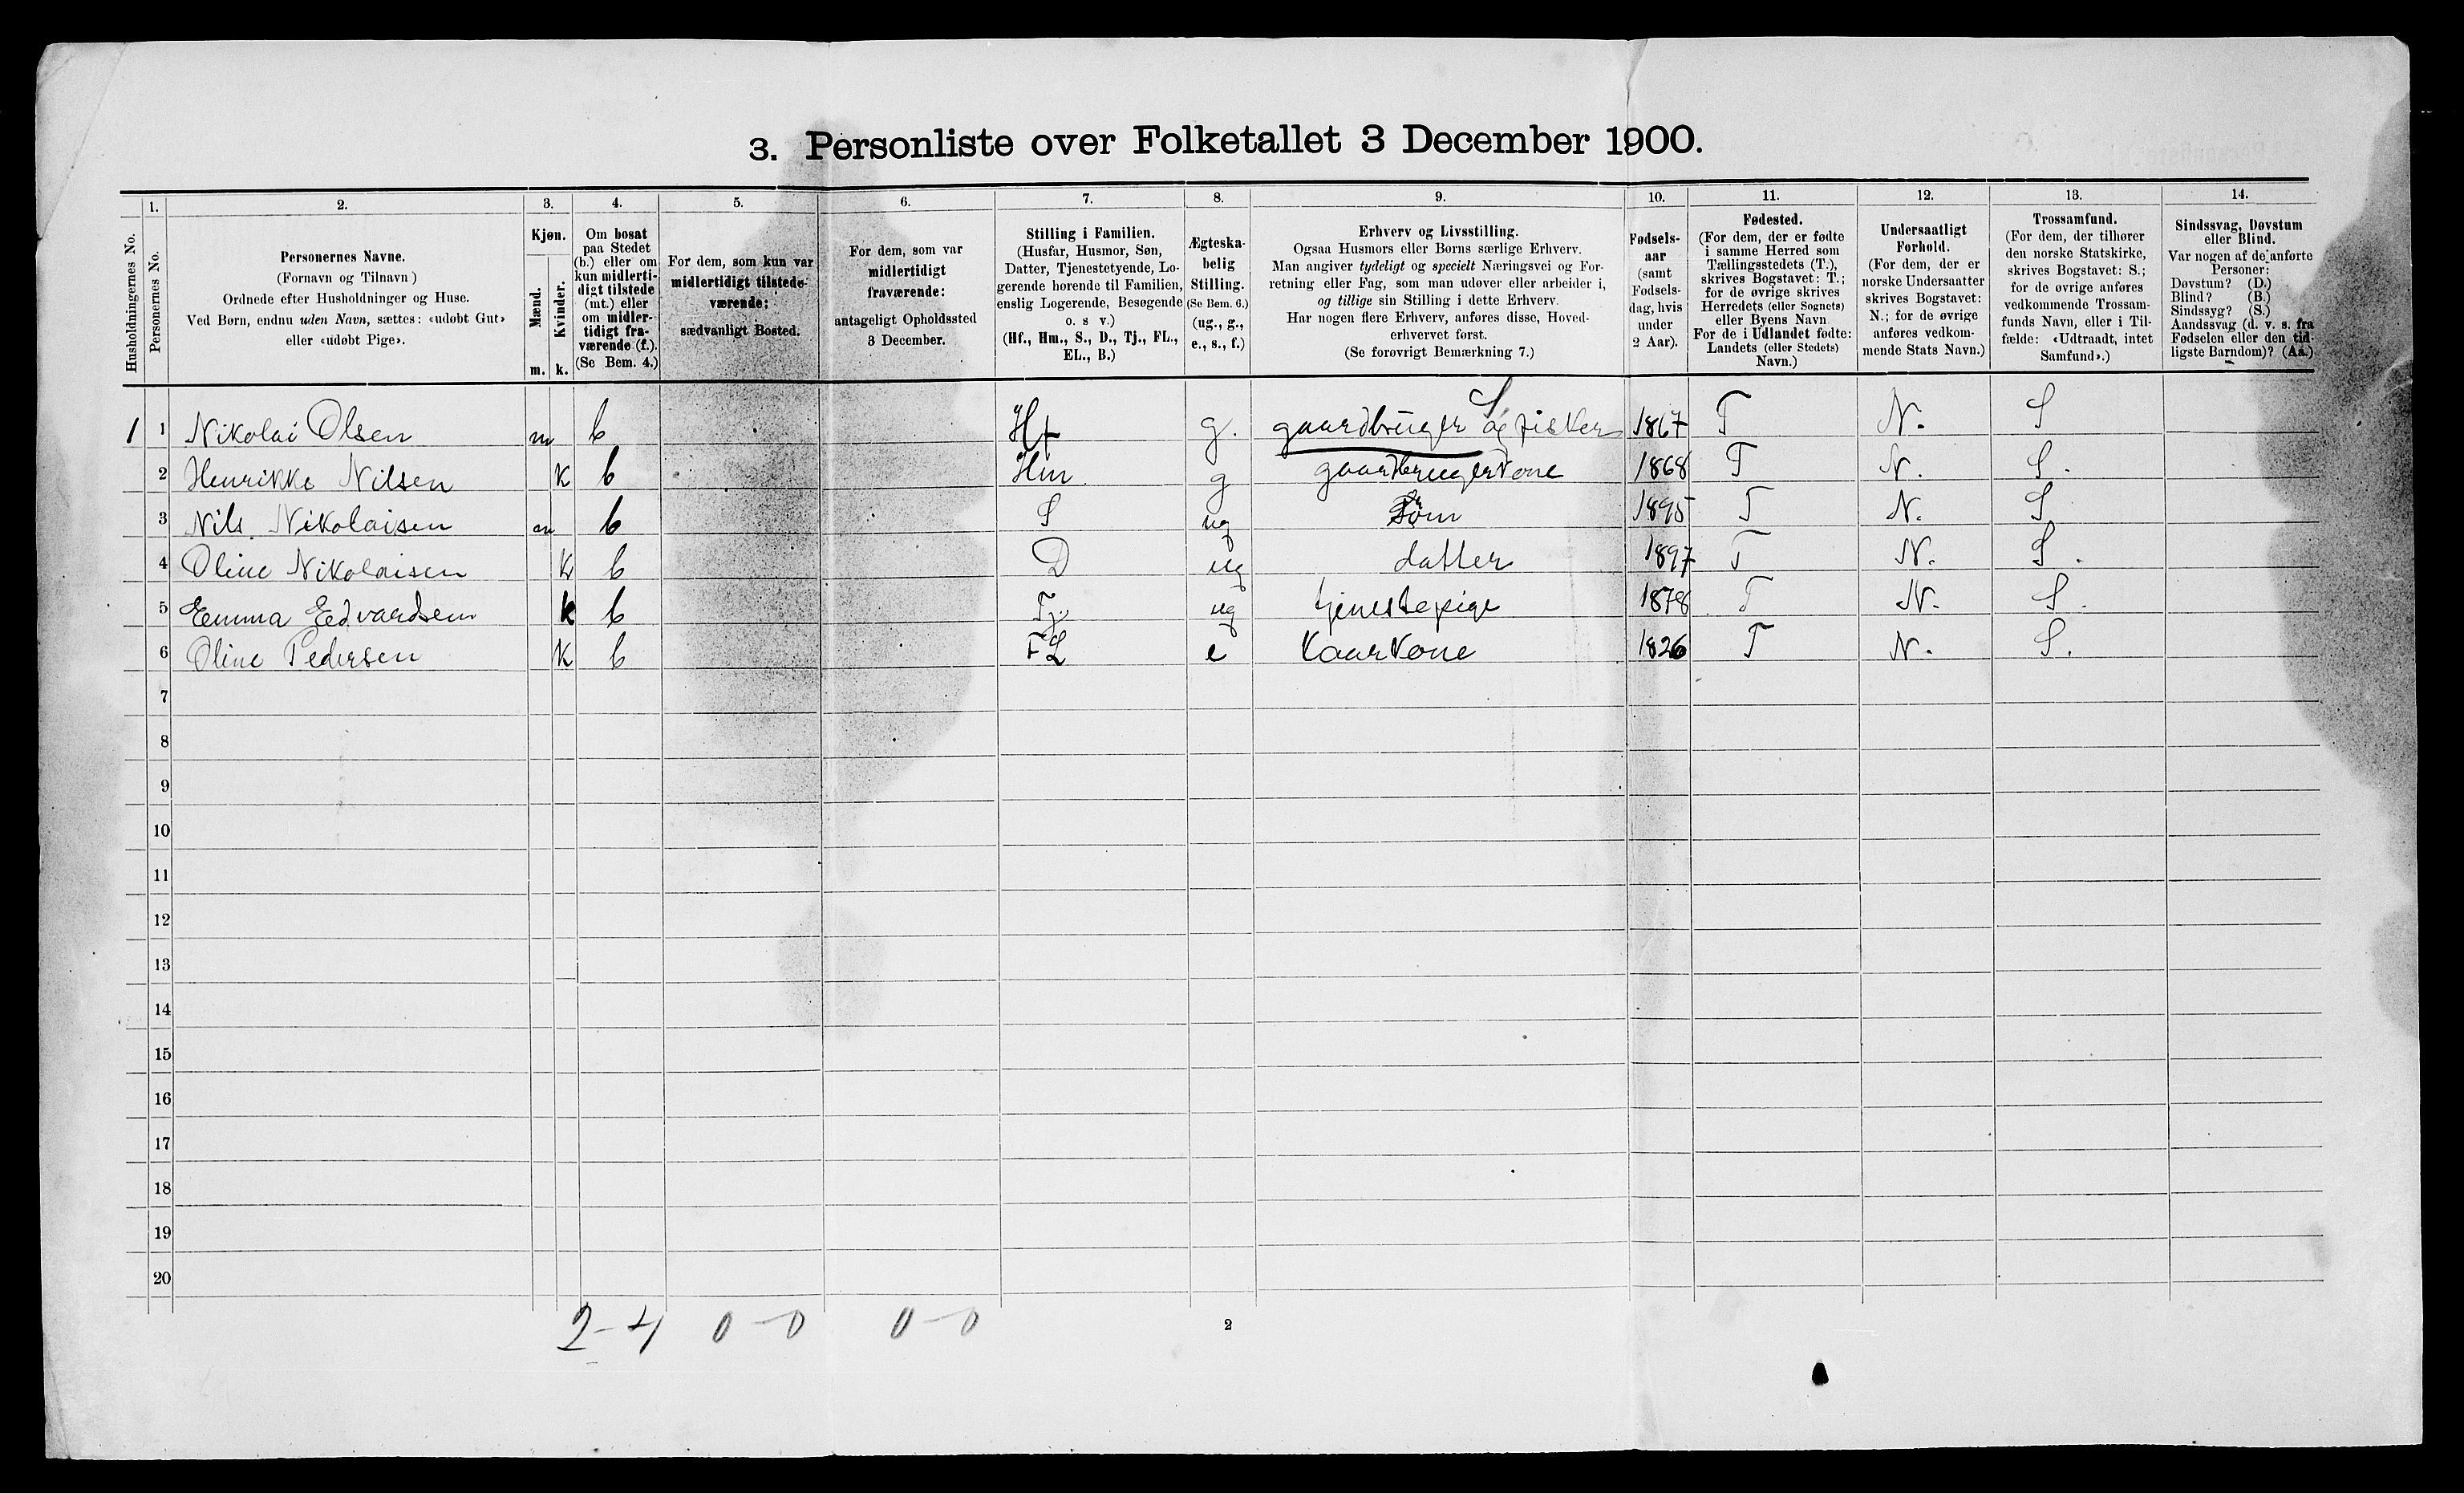 3. Personliste over Folketallet 3 December 1900.
Husholdningernes No.
1.
Personernes No.
2.
Personernes Navne.
(Fornavn og Tilnavn)
Ordnede efter Husholdninger og Huse.
Ved Børn, endnu uden Navn, sættes: «udøbt Gut»
eller «udøbt Pige».
3.
Kjøn.
Mænd.
Kvinder.
m. k.
4.
Om bosat
paa Stedet
(b.) eller om
kun midlerti-
digt tilstede
(mt.) eller
om midler-
tidigt fra-
værende (f.).
(Se Bem. 4.)
5.
For dem, som kun var
midlertidigt tilstede-
værende:
sædvanligt Bosted.
6.
For dem, som var
midlertidigt
fraværende:
antageligt Opholdssted
3 December.
7.
Stilling i Familien.
(Husfar, Husmor, Søn,
Datter, Tjenestetyende, Lo-
gerende hørende til Familien,
enslig Logerende, Besøgende
o. s v.)
(Hf., Hm., S., D., Tj., FL.,
EL., B.)
8.
Ægteska-
belig
Stilling.
(Se Bem. 6.)
(ug., g.,
e., s., f.)
9.
Erhverv og Livsstilling.
Ogsaa Husmors eller Børns særlige Erhverv.
Man angiver tydeligt og specielt Næringsvei og For-
retning eller Fag, som man udøver eller arbeider i,
og tillige sin Stilling i dette Erhverv.
Har nogen flere Erhverv, anføres disse, Hoved-
erhvervet først.
(Se forøvrigt Bemærkning 7.)
10.
Fødsels-
aar
(samt
Fødsels-
dag, hvis
under
2 Aar).
11.
Fødested.
(For dem, der er fødte
i samme Herred som
Tællingsstedets (T.),
skrives Bogstavet: T.;
for de øvrige skrives
Herredets (eller Sognets)
eller Byens Navn
For de i Udlandet fødte:
Landets (eller Stedets)
Navn.)
12.
Undersaatligt
Forhold.
(For dem, der er
norske Undersaatter
skrives Bogstavet:
N.; for de øvrige
anføres vedkom-
mende Stats Navn.)
13.
Trossamfund.
(For dem, der tilhører
den norske Statskirke,
skrives Bogstavet: S.;
for de øvrige anføres
vedkommende Trossam-
funds Navn, eller i Til-
fælde: «Udtraadt, intet
Samfund».)
14.
Sindssvag, Døvstum
eller Blind.
Var nogen af de anførte
Personer:
Døvstum? (D.)
Blind? (B.)
Sindssyg? (S.)
Aandssvag (d. v. s. fra
Fødselen eller den tid-
ligste Barndom)? (Aa.)
1 1 Nikolai Olsen m b Hf g. gaardbruger og fisker S 1867 T N. S
2 Henrikke Nilsen k b Hm g gaardbrugerkone 1868 T N. S.
3 Nils Nikolaisen m b S ug Søn 1895 T N. S
4 Oline Nikolaisen k b D ug datter 1897 T N. S.
5 Emma Edvardsen k b Tj. ug tjenestepige 1878 T N. S.
6 Oline Pedersen k b FL e Kaarkone 1826 T N. S.
7
8
9
10
11
12
13
14
15
16
17
18
19
20
2-4 0-0 0-0
2